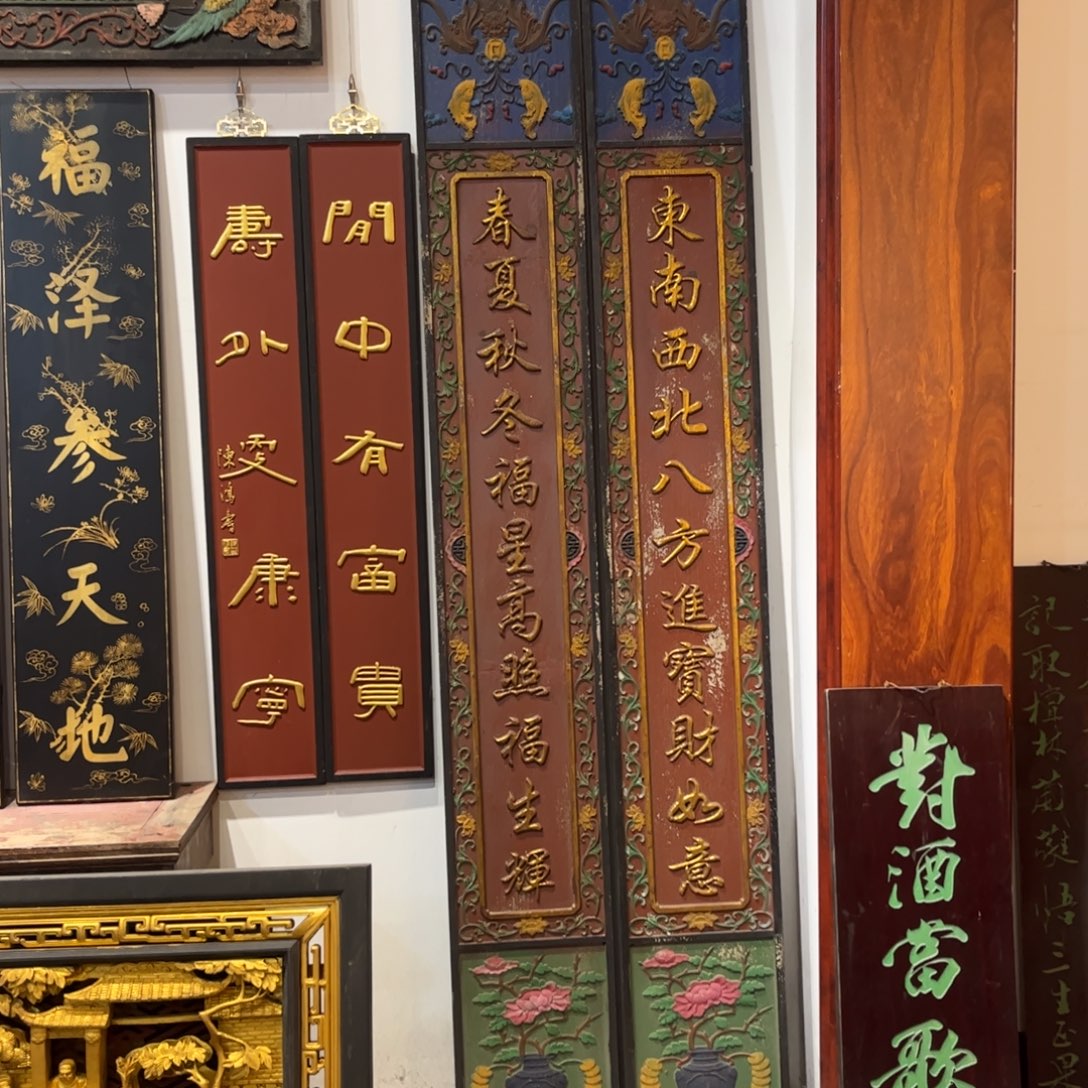 福澤參天地
閒中有富貴
壽外更康寧
東南西北八方進寶財如意
春夏秋冬福星高照福生輝
對酒當歌
記取檀林
悟三生